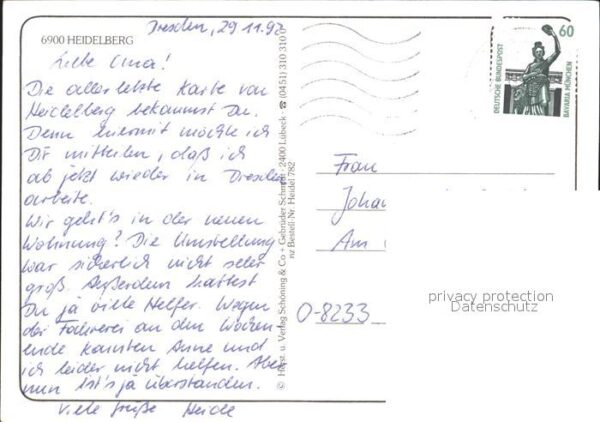 Dresden, 29.11.92
6900 HEIDELBERG
Liebe Oma!
Die allerletzte Karte von
Heidelberg bekommst Du.
Denn hiermit möchte ich
Dir mitteilen, daß ich
ab jetzt wieder in Dresden
arbeite.
Wie geht's in der neuen
Wohnung? Die Umstellung
war sicherlich nicht sehr
groß. Außerdem hattest
Du ja viele Helfer. Wegen
der Fahrerei an den Wochen-
ende konnten Anne und
ich leider nicht helfen. Aber
nun ist's ja überstanden.
Viele Grüße Heide
© Horst u. Verlag Schöning & Co + Gebrüder Schmidt · 2400 Lübeck · ☎ (0451) 310 310
nz Bestell-Nr. Heidel 782
60
DEUTSCHE BUNDESPOST
BAVARIA MÜNCHEN
Frau
Joha
Am
O-8233
privacy protection
Datenschutz